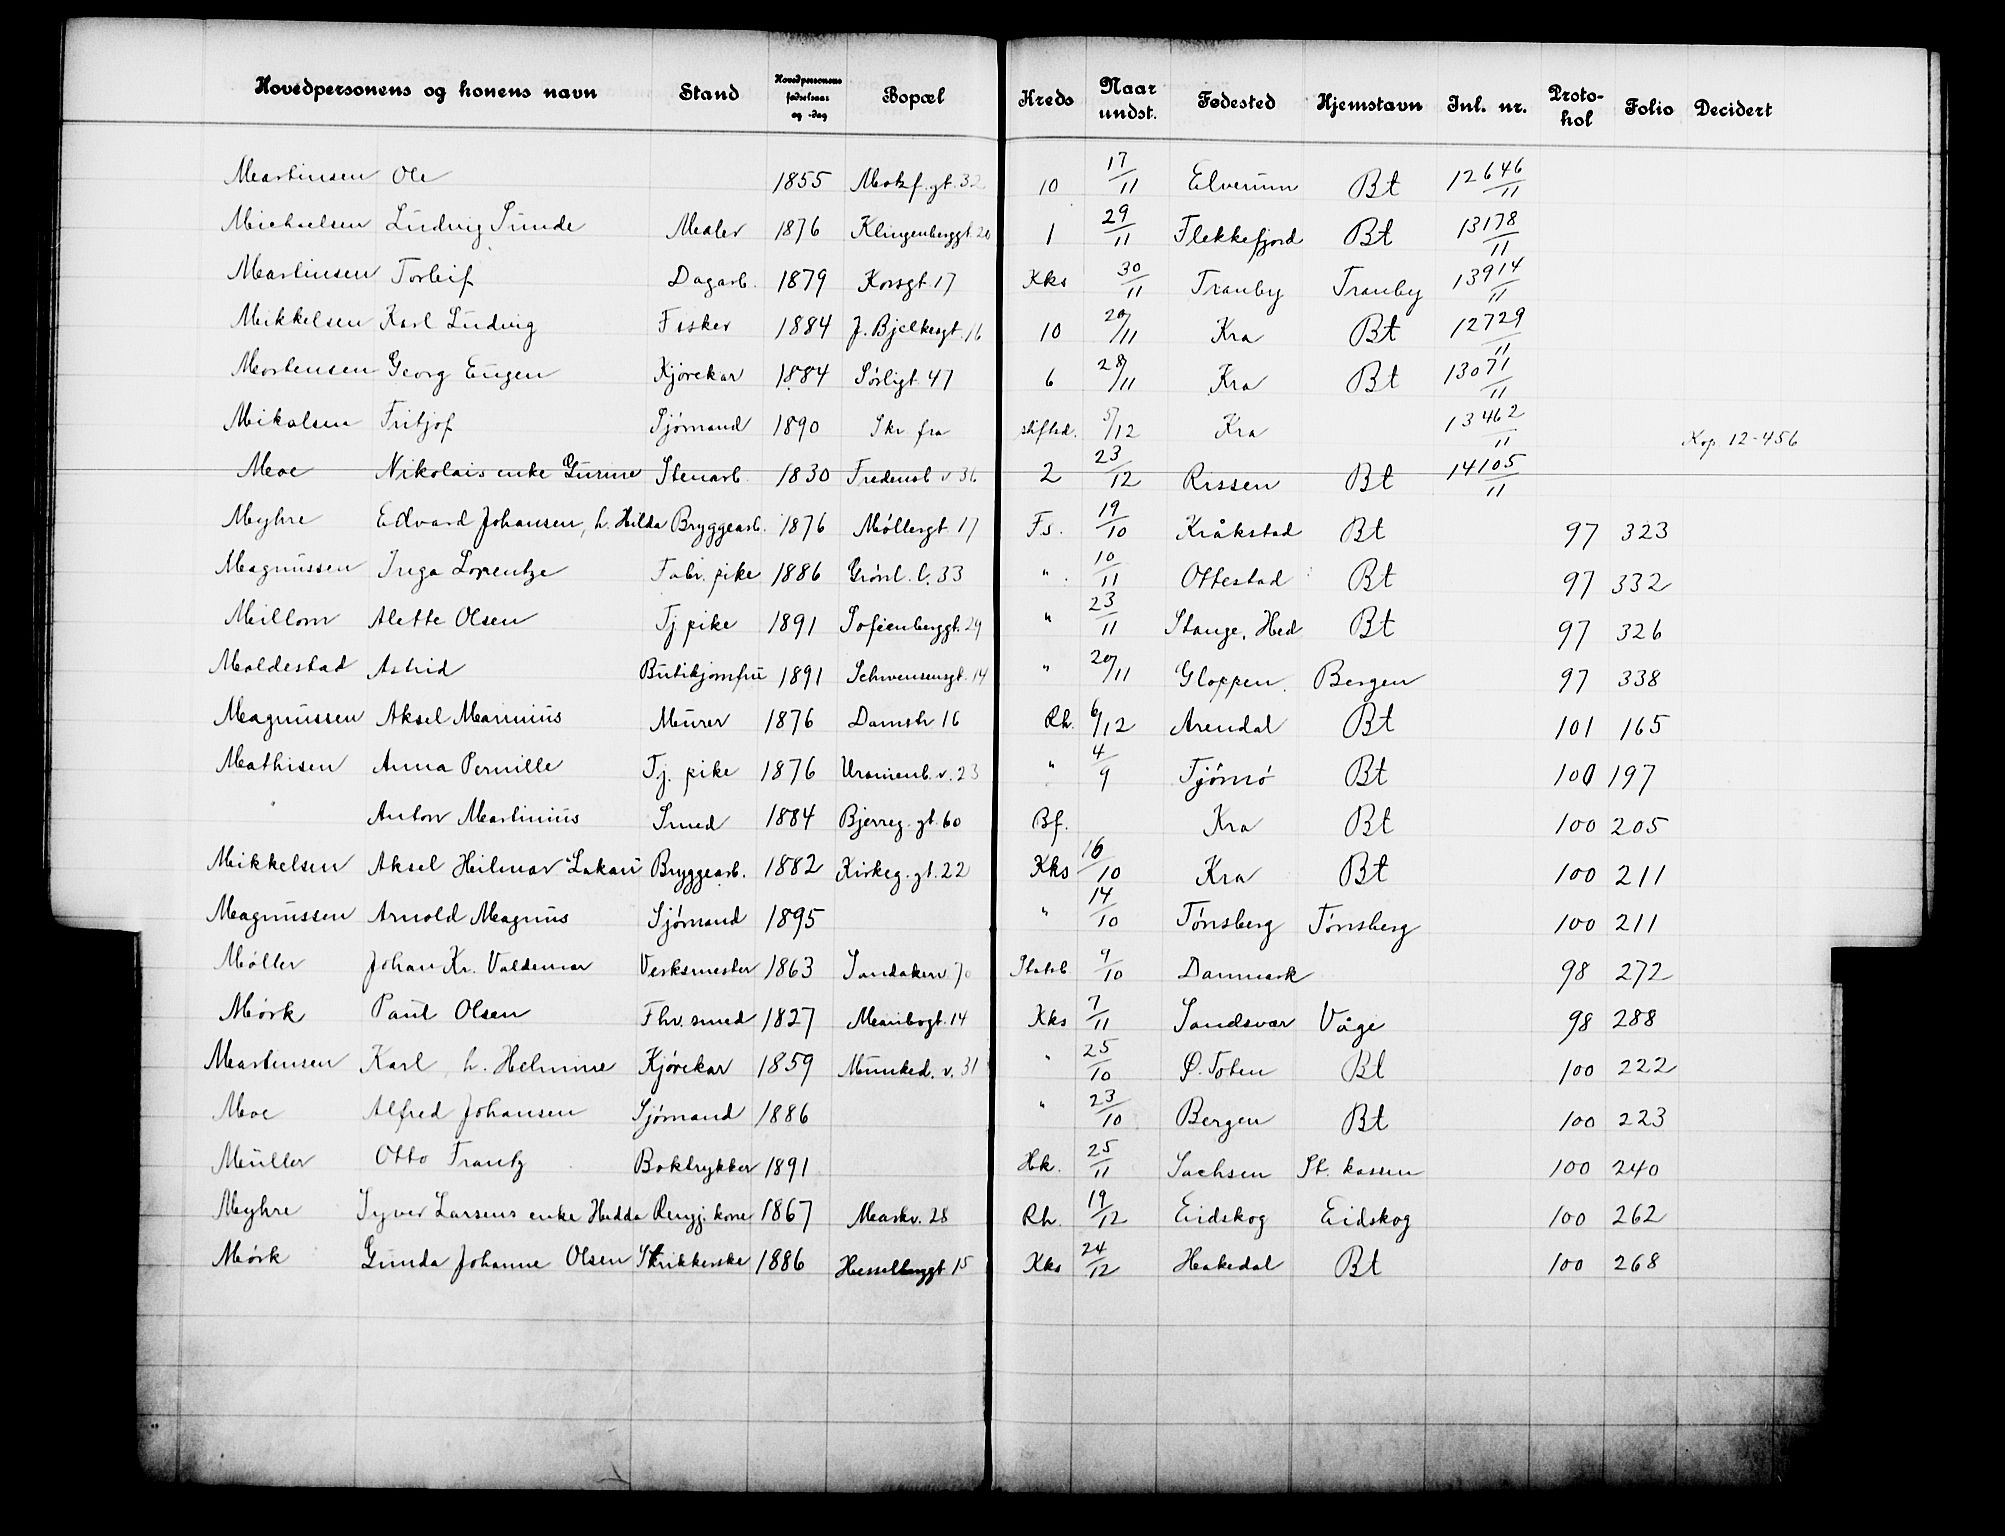 Hovedpersonens og konens navn Stand Hovedpersonens fødselsaar og -dag Bopæl Kreds Naar undst. Fødested Hjemstavn Inl. nr. Protokol Folio Decidert
Martinsen Ole 1855 Motzf.gt. 32 10 17/11 Elverum Bt 12646/11
Michaelsen Ludvig Sunde Maler 1876 Klingenberggt 20 1 29/11 Flekkefjord Bt 13178/11
Martinsen Torleif Dagarb. 1879 Korsgt 17 Kks 30/11 Tranby Tranby 13914/11
Mikkelsen Karl Ludvig Fisker 1884 J. Bjelkesgt. 16 10 20/11 Kra Bt 12729/11
Mortensen Georg Eugen Kjørekar 1884 Sørligt. 47 6 28/11 Kra Bt 13071/11
Mikalsen Fritjof Sjømand 1890 Skr fra skifted. 5/12 Kra 13462/11 Kop 12-456
Moe Nikolais enke Gurine Stenarb. 1830 Fredensb v 36 2 23/12 Rissen Bt 14105/11
Myhre Edvard Johansen, h. Hilda Bryggearb. 1876 Møllergt 17 Fs. 19/10 Kråkstad Bt 97 323
Magnussen Inga Lorentze Fabr. pike 1886 Grønl. l. 33 " 10/11 Ottestad Bt 97 332
Millom Alette Olsen Tj pike 1891 Sofienberggt. 29 " 23/11 Stange, Hed Bt 97 326
Moldestad Astrid Butikjomfru 1891 Schwensensgt. 14 " 20/11 Gloppen Bergen 97 338
Magnussen Aksel Marinius Murer 1876 Damstr 16 Rh. 6/12 Arendal Bt 101 165
Mathisen Anna Pernille Tj. pike 1876 Uranienb. v. 23 " 4/9 Tjømø Bt 100 197
" Anton Martinius Smed 1884 Bjerreg. gt. 60 Bf. Kra Bt 100 205
Mikkelsen Aksel Hilmar "Lakau" Bryggearb. 1882 Kirkeg. gt. 22 Kks 16/10 Kra Bt 100 211
Magnussen Arnold Magnus Sjømand 1895 " 14/10 Tønsberg Tønsberg 100 211
Møller Johan Kr. Valdemar Verksmester 1863 Sandakerv 70 Statsb 9/10 Danmark 98 272
Mørk Paul Olsen Fhv. smed 1827 Maribogt. 14 Kks 7/11 Sandsvær Våge 98 288
Martinsen Karl, h. Helmine Kjørekar 1859 Munked. v. 31 " 25/10 Ø. Toten Bt 100 222
Moe Alfred Johansen Sjømand 1886 " 23/10 Bergen Bt 100 223
Müller Otto Frantz Boktrykker 1891 Hk. 25/11 Sachsen St. kassen 100 240
Myhre Syver Larsens enke Hedda Rengj. kone 1867 Maskv. 28 Rh. 19/12 Eidskog Eidskog 100 262
Mørk Gunda Johanne Olsen Strikkerske 1886 Hesselberggt 15 Kks 24/12 Hakedal Bt 100 268